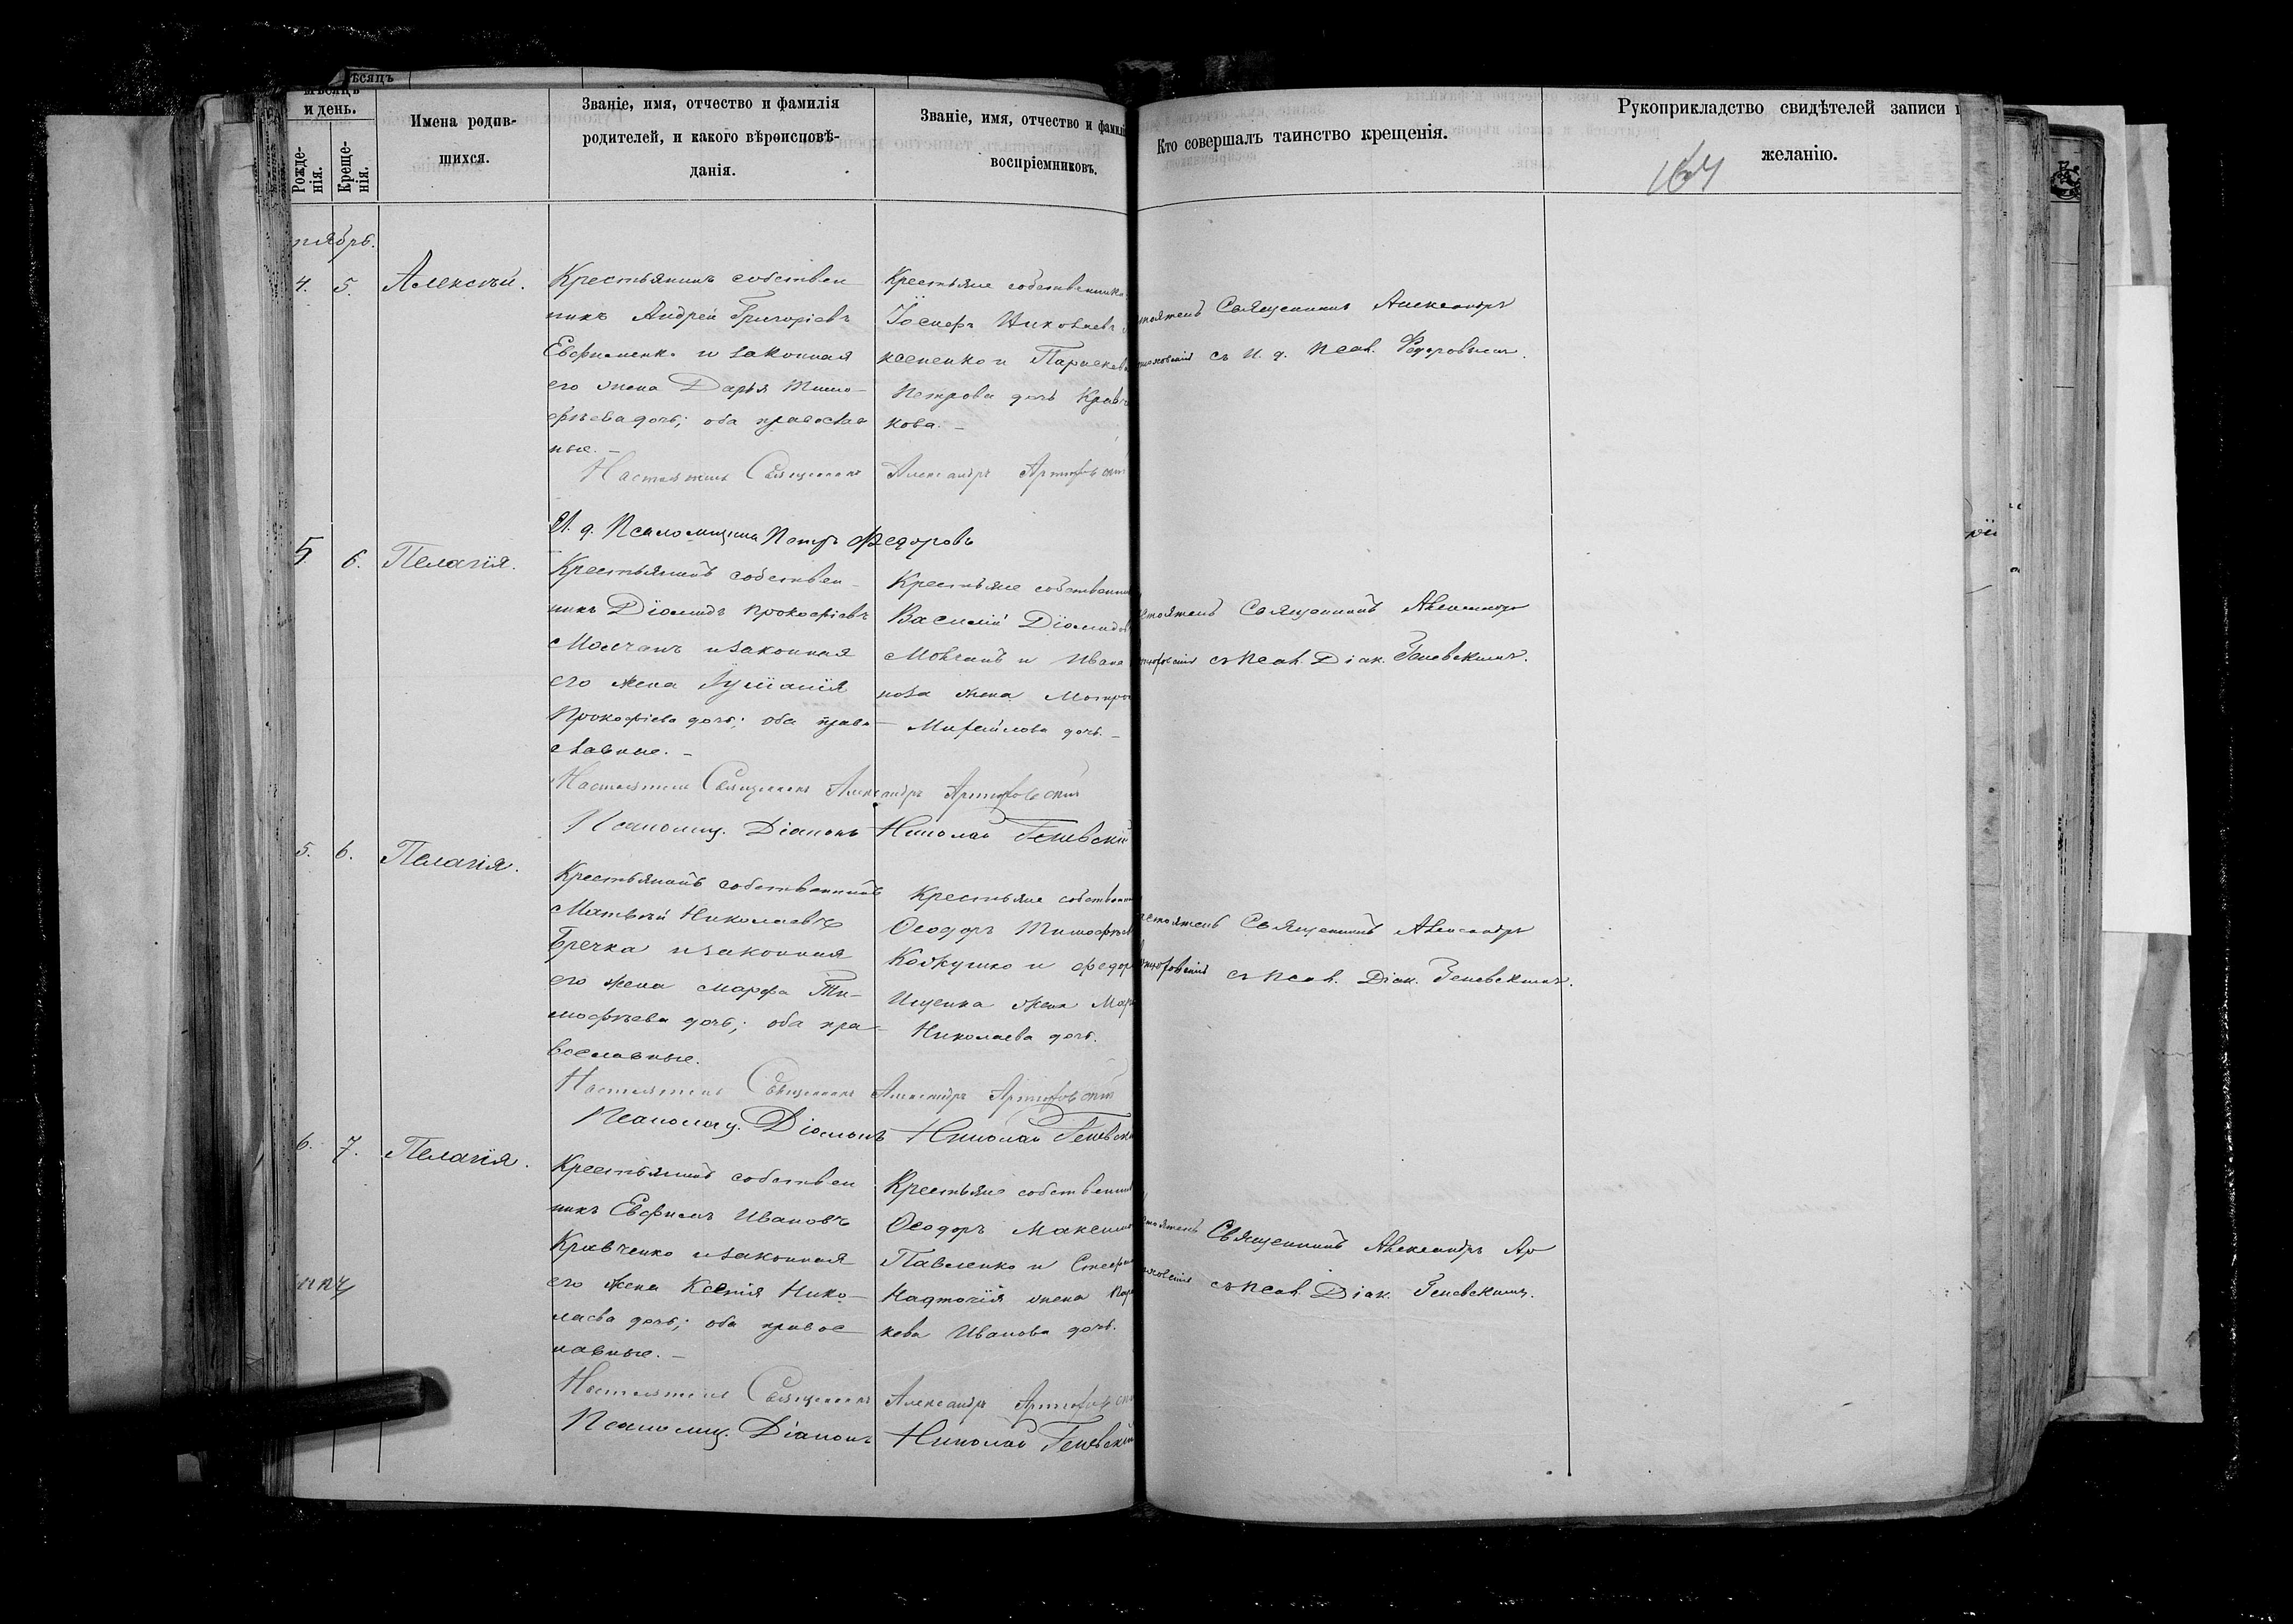 мѣсяцъ
Мѣсяцъ
и день.
Рожде-
нія.
Креще-
нія.
Имена родив-
шихся.
Званіе, имя, отчество и фамилія
родителей, и какого вѣроисповѣ-
данія.
Званіе, имя, отчество и фамилі
воспріемниковъ.
Кто совершалъ таинство крещенія.
Рукоприкладство свидѣтелей записи
желанію.
164
тябрь.
4. 5. Алексѣй.
Крестьянинъ собствен
никъ Андрей Григоріевъ
Евфименко и законная
его жена Дарья Тимо-
фѣева дочь; оба православ
ные. –
Крестьяне собственники
Іосифъ Николаевъ
ксененко и Параскева
Петрова дочь Крав
кова. –
Священникъ Александръ
съ И. д. псал. Федоровымъ.
Настоятель Священникъ Александръ
И. д. Псаломщика Петръ Федоровъ
5 6. Пелагія.
Крестьянинъ собствен-
никъ Діомидъ Прокофіевъ
Молчанъ и законная
его жена Іуліанія
Прокофіева дочь; оба право
славные. –
Крестьяне собственни
Василій Діомидов
Молчанъ и Ивана
жена Матро
Михайлова дочь. –
стоятель Священникъ Александръ
съ псал. Діак. Геневскимъ.
Настоятель Священникъ Александръ
Псаломщ. Діаконъ Николай Геневскій
5. 6. Пелагія.
Крестьянинъ собственникъ
Матвѣй Николаевъ
Гречка и законная
его жена Марфа Ти-
мофѣева дочь; оба пра-
вославные.
Крестьяне собственни
Ѳеодоръ Тимофѣев
Кожушко и Федор
Ищенка жена Мар
Николаева дочь.
стоятель Священникъ Александръ
съ псал. Діак. Геневскимъ.
Настоятель Священникъ Александръ
Псаломщ. Діаконъ Николай Геневскі
6. 7. Пелагія.
Крестьянинъ собствен
никъ Евфимъ Ивановъ
Кравченко и законная
его жена Ксенія Нико-
лаева дочь; оба правос
лавные. –
Крестьяне собственник
Ѳеодоръ Максимо
Павленко и Стефа
Надточія жена Пара
кева Иванова дочь.
стоятель Священникъ Александръ Ар
съ псал. Діак. Геневскимъ.
Настоятель Священникъ Александръ
Псаломщ. Діаконъ Николай Геневскій